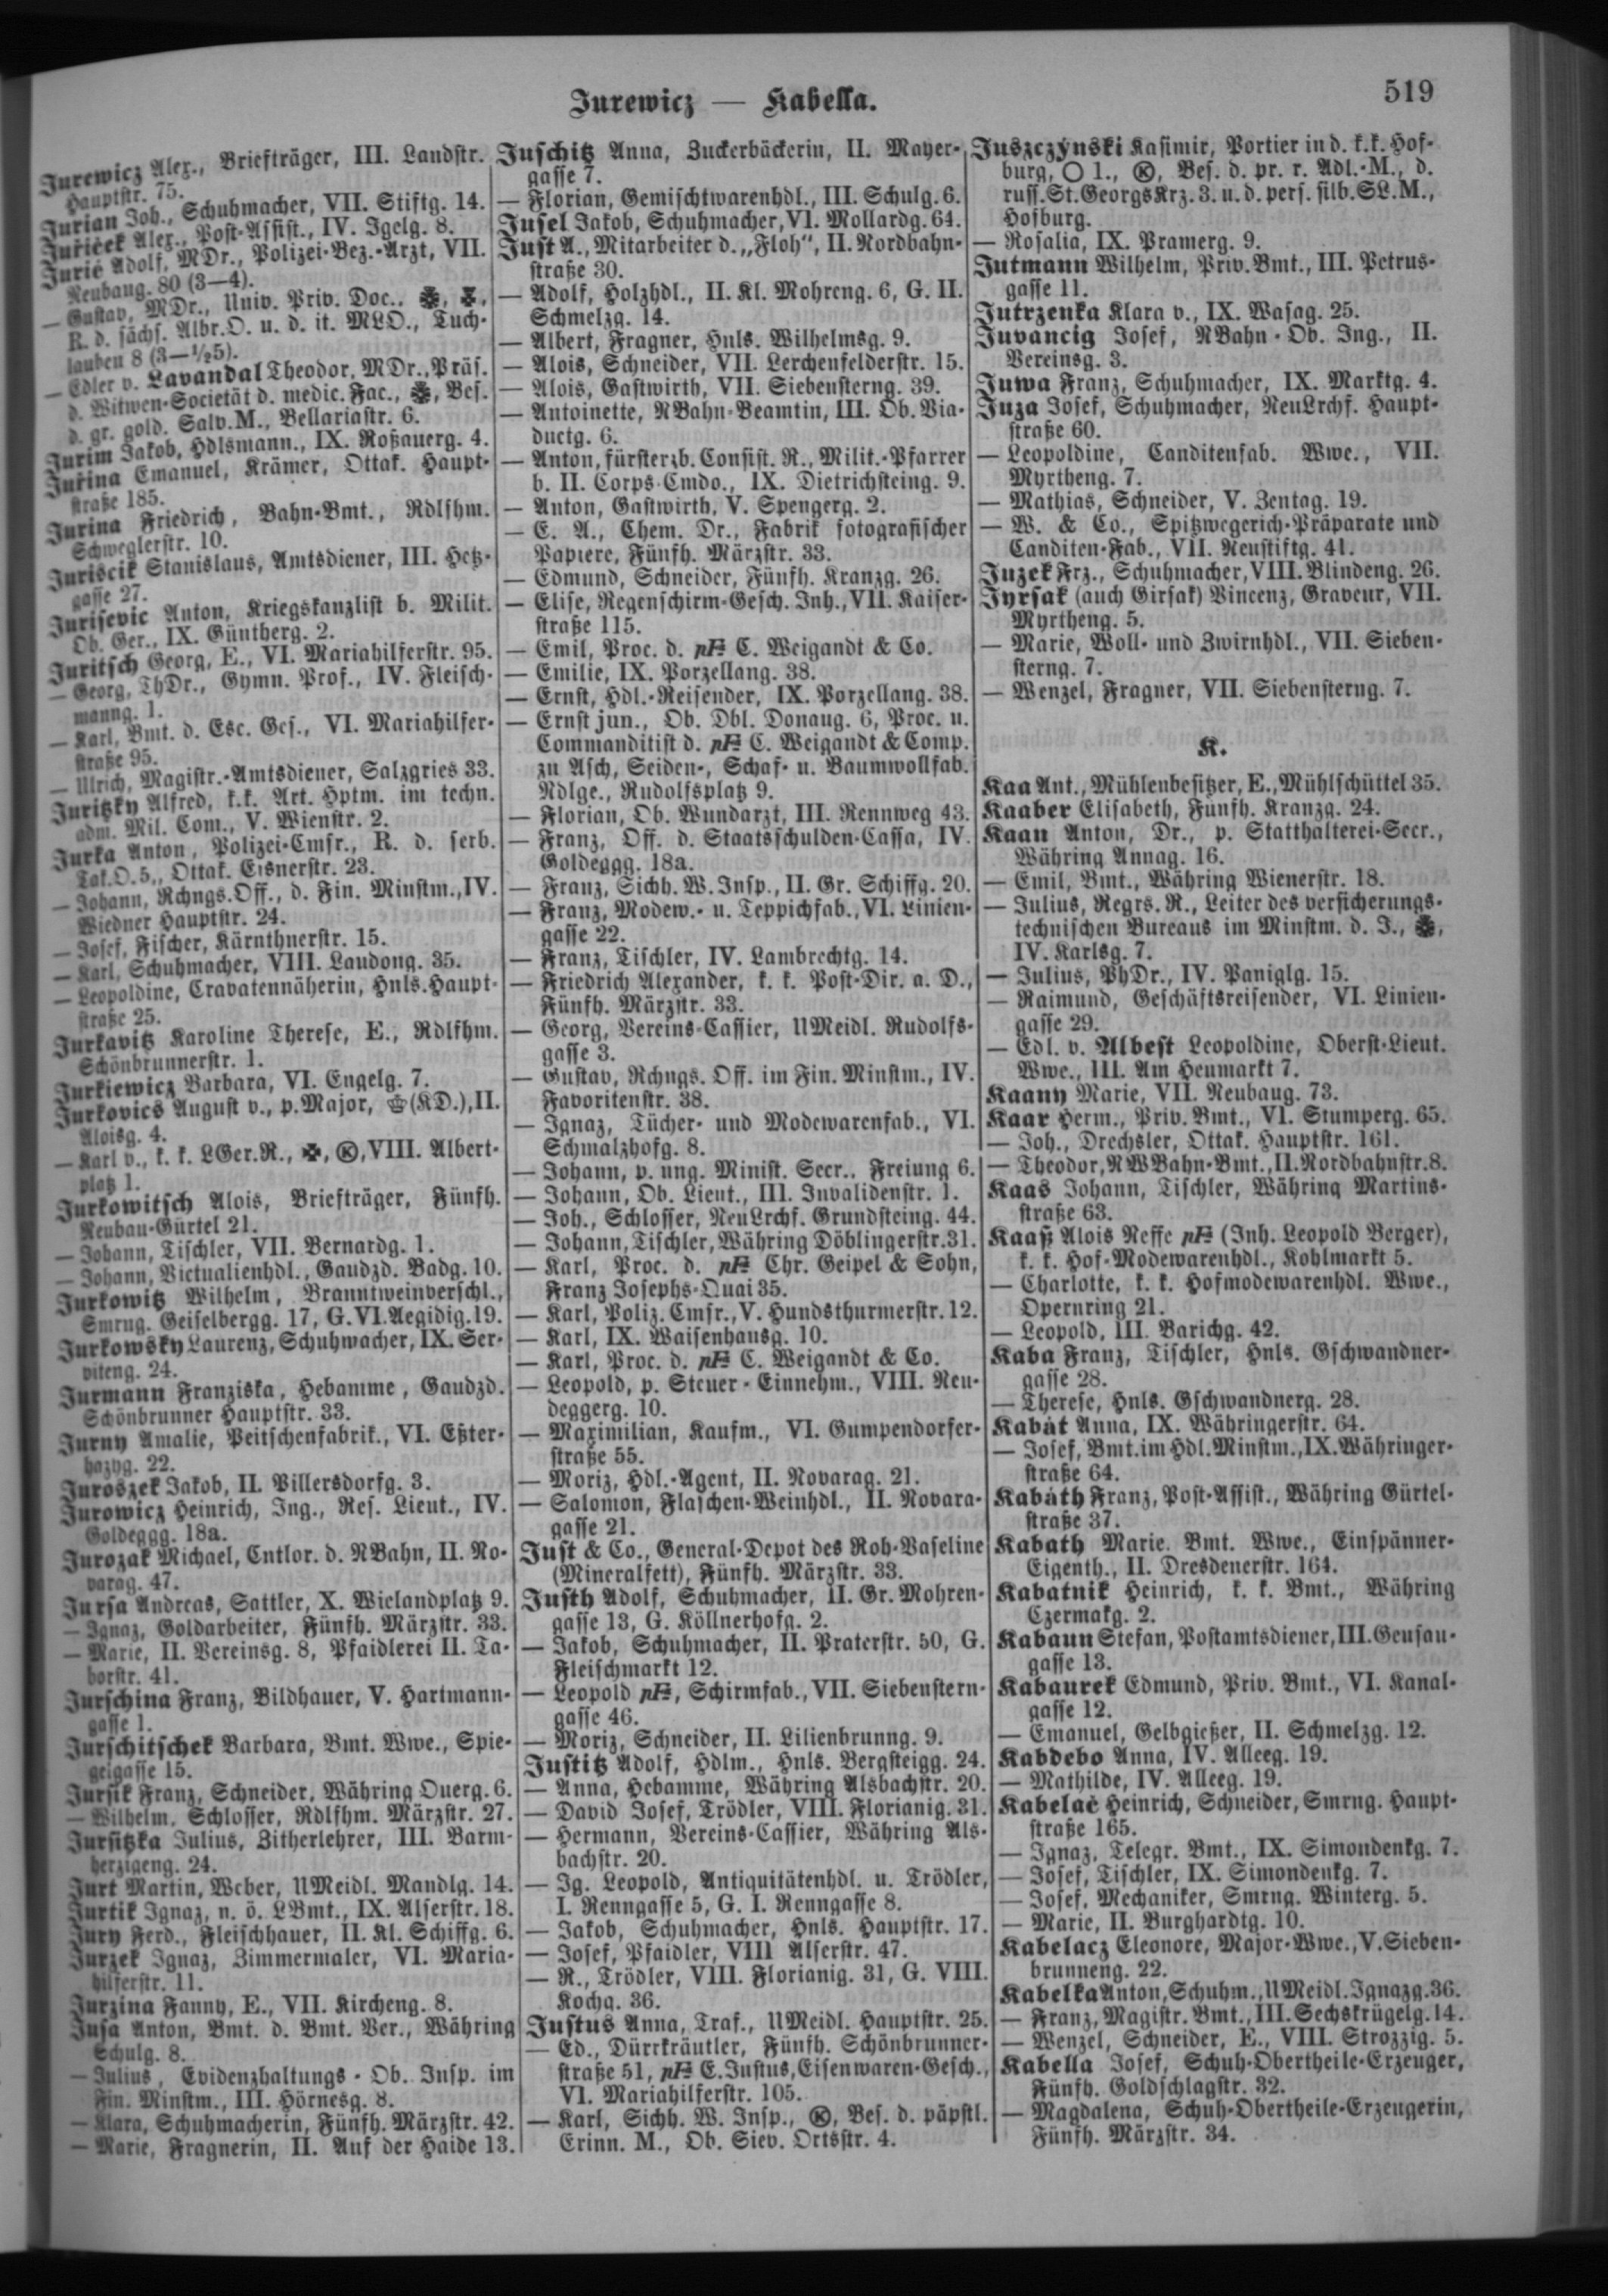 Jurewicz — Kabella.
519
Jurewicz Alex., Briefträger, III. Landstr.
Hauptstr. 75.
Jurian Joh., Schuhmacher, VII. Stiftg. 14.
Juřiček Alex., Post-Assist., IV. Igelg. 8.
Jurié Adolf, MDr., Polizei-Bez.-Arzt, VII.
Neubaug. 80 (3—4).
— Gustav, MDr., Univ. Priv. Doc.,
R. d. sächs. Albr.O. u. d. it. MLO., Tuch-
lauben 8 (3—½5).
— Edler v. Lavandal Theodor, MDr., Präs.
d. Witwen-Societät d. medic. Fac., Bes.
d. gr. gold. Salv.M., Bellariastr. 6.
Jurim Jakob, Hdlsmann., IX. Roßauerg. 4.
Juřina Emanuel, Krämer, Ottak. Haupt-
straße 185.
Jurina Friedrich, Bahn-Bmt., Rdlfhm.
Schweglerstr. 10.
Juriscik Stanislaus, Amtsdiener, III. Hetz-
gasse 27.
Jurisevic Anton, Kriegskanzlist b. Milit.
Ob. Ger., IX. Güntherg. 2.
Juritsch Georg, E., VI. Mariahilferstr. 95.
— Georg, ThDr., Gymn. Prof., IV. Fleisch-
manng. 1.
— Karl, Bmt. d. Esc. Ges., VI. Mariahilfer-
straße 95.
— Ulrich, Magistr.-Amtsdiener, Salzgries 33.
Juritzky Alfred, k.k. Art. Hptm. im techn.
adm. Mil. Com., V. Wienstr. 2.
Jurka Anton, Polizei-Cmsr., R. d. serb.
Tak.O.5., Ottak. Eisnerstr. 23.
— Johann, Rchngs.Off., d. Fin. Minstm., IV.
Wiedner Hauptstr. 24.
— Josef, Fischer, Kärnthnerstr. 15.
— Karl, Schuhmacher, VIII. Laudong. 35.
— Leopoldine, Cravatennäherin, Hnls. Haupt-
straße 25.
Jurkavitz Karoline Therese, E., Rdlfhm.
Schönbrunnerstr. 1.
Jurkiewicz Barbara, VI. Engelg. 7.
Jurkovics August v., p. Major, (KD.), II.
Aloisg. 4.
— Karl v., k. k. LGer.R., Ⓚ, VIII. Albert-
platz 1.
Jurkowitsch Alois, Briefträger, Fünfh.
Neubau-Gürtel 21.
— Johann, Tischler, VII. Bernardg. 1.
— Johann, Victualienhdl., Gaudzd. Badg. 10.
Jurkowitz Wilhelm, Branntweinverschl.,
Smrng. Geiselbergg. 17, G. VI. Aegidig. 19.
Jurkowsky Laurenz, Schuhwacher, IX. Ser-
viteng. 24.
Jurmann Franziska, Hebamme, Gaudzd.
Schönbrunner Hauptstr. 33.
Jurny Amalie, Peitschenfabrik., VI. Eßter-
hazyg. 22.
Juroszek Jakob, II. Pillersdorfg. 3.
Jurowicz Heinrich, Ing., Res. Lieut., IV.
Goldeggg. 18a.
Jurozak Michael, Cntlor. d. NBahn, II. No-
varag. 47.
Jursa Andreas, Sattler, X. Wielandplatz 9.
— Ignaz, Goldarbeiter, Fünfh. Märzstr. 33.
— Marie, II. Vereinsg. 8, Pfaidlerei II. Ta-
borstr. 41.
Jurschina Franz, Bildhauer, V. Hartmann-
gasse 1.
Jurschitschek Barbara, Bmt. Wwe., Spie-
gelgasse 15.
Jursik Franz, Schneider, Währing Querg. 6.
— Wilhelm, Schlosser, Rdlfhm. Märzstr. 27.
Jursitzka Julius, Zitherlehrer, III. Barm-
herzigeng. 24.
Jurt Martin, Weber, UMeidl. Mandlg. 14.
Jurtik Ignaz, n. ö. LBmt., IX. Alserstr. 18.
Jury Ferd., Fleischhauer, II. Kl. Schiffg. 6.
Jurzek Ignaz, Zimmermaler, VI. Maria-
hilferstr. 11.
Jurzina Fanny, E., VII. Kircheng. 8.
Jusa Anton, Bmt. d. Bmt. Ver., Währing
Schulg. 8.
— Julius, Evidenzhaltungs-Ob. Insp. im
Fin. Minstm., III. Hörnesg. 8.
— Klara, Schuhmacherin, Fünfh. Märzstr. 42.
— Marie, Fragnerin, II. Auf der Haide 13.
Juschitz Anna, Zuckerbäckerin, II. Mayer-
gasse 7.
— Florian, Gemischtwarenhdl., III. Schulg. 6.
Jusel Jakob, Schuhmacher, VI. Mollardg. 64.
Just A., Mitarbeiter d. „Floh", II. Nordbahn-
straße 30.
— Adolf, Holzhdl., II. Kl. Mohreng. 6, G. II.
Schmelzg. 14.
— Albert, Fragner, Hnls. Wilhelmsg. 9.
— Alois, Schneider, VII. Lerchenfelderstr. 15.
— Alois, Gastwirth, VII. Siebensterng. 39.
— Antoinette, NBahn-Beamtin, III. Ob. Via-
ductg. 6.
— Anton, fürsterzb. Consist. R., Milit.-Pfarrer
b. II. Corps-Cmdo., IX. Dietrichsteing. 9.
— Anton, Gastwirth, V. Spengerg. 2.
— E. A., Chem. Dr., Fabrik fotografischer
Papiere, Fünfh. Märzstr. 33.
— Edmund, Schneider, Fünfh. Kranzg. 26.
— Elise, Regenschirm-Gesch. Inh., VII. Kaiser-
straße 115.
— Emil, Proc. d. pF C. Weigandt & Co.
— Emilie, IX. Porzellang. 38.
— Ernst, Hdl.-Reisender, IX. Porzellang. 38.
— Ernst jun., Ob. Dbl. Donaug. 6, Proc. u.
Commanditist d. pF C. Weigandt & Comp.
zu Asch, Seiden-, Schaf- u. Baumwollfab.
Ndlge., Rudolfsplatz 9.
— Florian, Ob. Wundarzt, III. Rennweg 43.
— Franz, Off. d. Staatsschulden-Cassa, IV.
Goldeggg. 18a.
— Franz, Sichh. W. Insp., II. Gr. Schiffg. 20.
— Franz, Modew.- u. Teppichfab., VI. Linien-
gasse 22.
— Franz, Tischler, IV. Lambrechtg. 14.
— Friedrich Alexander, k. k. Post-Dir. a. D.,
Fünfh. Märzstr. 33.
— Georg, Vereins-Cassier, UMeidl. Rudolfs-
gasse 3.
— Gustav, Rchngs. Off. im Fin. Minstm., IV.
Favoritenstr. 38.
— Ignaz, Tücher- und Modewarenfab., VI.
Schmalzhofg. 8.
— Johann, p. ung. Minist. Secr., Freiung 6.
— Johann, Ob. Lieut., III. Invalidenstr. 1.
— Joh., Schlosser, NeuLrchf. Grundsteing. 44.
— Johann, Tischler, Währing Döblingerstr. 31.
— Karl, Proc. d. pF Chr. Geipel & Sohn,
Franz Josephs-Quai 35.
— Karl, Poliz. Cmsr., V. Hundsthurmerstr. 12.
— Karl, IX. Waisenhausg. 10.
— Karl, Proc. d. pF C. Weigandt & Co.
— Leopold, p. Steuer-Einnehm., VIII. Neu-
deggerg. 10.
— Maximilian, Kaufm., VI. Gumpendorfer-
straße 55.
— Moriz, Hdl.-Agent, II. Novarag. 21.
— Salomon, Flaschen-Weinhdl., II. Novara-
gasse 21.
Just & Co., General-Depot des Roh-Vaseline
(Mineralfett), Fünfh. Märzstr. 33.
Justh Adolf, Schuhmacher, II. Gr. Mohren-
gasse 13, G. Köllnerhofg. 2.
— Jakob, Schuhmacher, II. Praterstr. 50, G.
Fleischmarkt 12.
— Leopold pF, Schirmfab., VII. Siebenstern-
gasse 46.
— Moriz, Schneider, II. Lilienbrunng. 9.
Justitz Adolf, Hdlm., Hnls. Bergsteigg. 24.
— Anna, Hebamme, Währing Alsbachstr. 20.
— David Josef, Trödler, VIII. Florianig. 31.
— Hermann, Vereins-Cassier, Währing Als-
bachstr. 20.
— Ig. Leopold, Antiquitätenhdl. u. Trödler,
I. Renngasse 5, G. I. Renngasse 8.
— Jakob, Schuhmacher, Hnls. Hauptstr. 17.
— Josef, Pfaidler, VIII Alserstr. 47.
— R., Trödler, VIII. Florianig. 31, G. VIII.
Kochg. 36.
Justus Anna, Traf., UMeidl. Hauptstr. 25.
— Ed., Dürrkräutler, Fünfh. Schönbrunner-
straße 51, pF E. Justus, Eisenwaren-Gesch.,
VI. Mariahilferstr. 105.
— Karl, Sichh. W. Insp., Ⓚ, Bes. d. päpstl.
Erinn. M., Ob. Siev. Ortsstr. 4.
Juszczýnski Kasimir, Portier in d. k.k. Hof-
burg, O 1., Ⓚ, Bes. d. pr. r. Adl.-M., d.
russ. St. GeorgsKrz. 3. u. d. pers. silb. SL.M.,
Hofburg.
— Rosalia, IX. Pramerg. 9.
Jutmann Wilhelm, Priv. Bmt., III. Petrus-
gasse 11.
Jutrzenka Klara v., IX. Wasag. 25.
Juvancig Josef, NBahn-Ob. Ing., II.
Vereinsg. 3.
Juwa Franz, Schuhmacher, IX. Marktg. 4.
Juza Josef, Schuhmacher, NeuLrchf. Haupt-
straße 60.
— Leopoldine, Canditenfab. Wwe., VII.
Myrtheng. 7.
— Mathias, Schneider, V. Zentag. 19.
— W. & Co., Spitzwegerich-Präparate und
Canditen-Fab., VII. Neustiftg. 41.
Juzek Frz., Schuhmacher, VIII. Blindeng. 26.
Jyrsak (auch Girsak) Vincenz, Graveur, VII.
Myrtheng. 5.
— Marie, Woll- und Zwirnhdl., VII. Sieben-
sterng. 7.
— Wenzel, Fragner, VII. Siebensterng. 7.
K.
Kaa Ant., Mühlenbesitzer, E., Mühlschüttel 35.
Kaaber Elisabeth, Fünfh. Kranzg. 24.
Kaan Anton, Dr., p. Statthalterei-Secr.,
Währing Annag. 16.
— Emil, Bmt., Währing Wienerstr. 18.
— Julius, Regrs. R., Leiter des versicherungs-
technischen Bureaus im Minstm. d. J.,
IV. Karlsg. 7.
— Julius, PhDr., IV. Paniglg. 15.
— Raimund, Geschäftsreisender, VI. Linien-
gasse 29.
— Edl. v. Albest Leopoldine, Oberst-Lieut.
Wwe., III. Am Heumarkt 7.
Kaany Marie, VII. Neubaug. 73.
Kaar Herm., Priv. Bmt., VI. Stumperg. 65.
— Joh., Drechsler, Ottak. Hauptstr. 161.
— Theodor, NWBahn-Bmt., II. Nordbahnstr. 8.
Kaas Johann, Tischler, Währing Martins-
straße 63.
Kaaß Alois Neffe pF (Inh. Leopold Berger),
k. k. Hof-Modewarenhdl., Kohlmarkt 5.
— Charlotte, k. k. Hofmodewarenhdl. Wwe.,
Opernring 21.
— Leopold, III. Barichg. 42.
Kaba Franz, Tischler, Hnls. Gschwandner-
gasse 28.
— Therese, Hnls. Gschwandnerg. 28.
Kabát Anna, IX. Währingerstr. 64.
— Josef, Bmt. im Hdl. Minstm., IX. Währinger-
straße 64.
Kabáth Franz, Post-Assist., Währing Gürtel-
straße 37.
Kabath Marie, Bmt. Wwe., Einspänner-
Eigenth., II. Dresdenerstr. 164.
Kabatnik Heinrich, k. k. Bmt., Währing
Czermakg. 2.
Kabaun Stefan, Postamtsdiener, III. Geusau-
gasse 13.
Kabaurek Edmund, Priv. Bmt., VI. Kanal-
gasse 12.
— Emanuel, Gelbgießer, II. Schmelzg. 12.
Kabdebo Anna, IV. Alleeg. 19.
— Mathilde, IV. Alleeg. 19.
Kabelač Heinrich, Schneider, Smrng. Haupt-
straße 165.
— Ignaz, Telegr. Bmt., IX. Simondenkg. 7.
— Josef, Tischler, IX. Simondenkg. 7.
— Josef, Mechaniker, Smrng. Winterg. 5.
— Marie, II. Burghardtg. 10.
Kabelacz Eleonore, Major-Wwe., V. Sieben-
brunneng. 22.
Kabelka Anton, Schuhm., UMeidl. Ignazg. 36.
— Franz, Magistr. Bmt., III. Sechskrügelg. 14.
— Wenzel, Schneider, E., VIII. Strozzig. 5.
Kabella Josef, Schuh-Obertheile-Erzeuger,
Fünfh. Goldschlagstr. 32.
— Magdalena, Schuh-Obertheile-Erzeugerin,
Fünfh. Märzstr. 34.